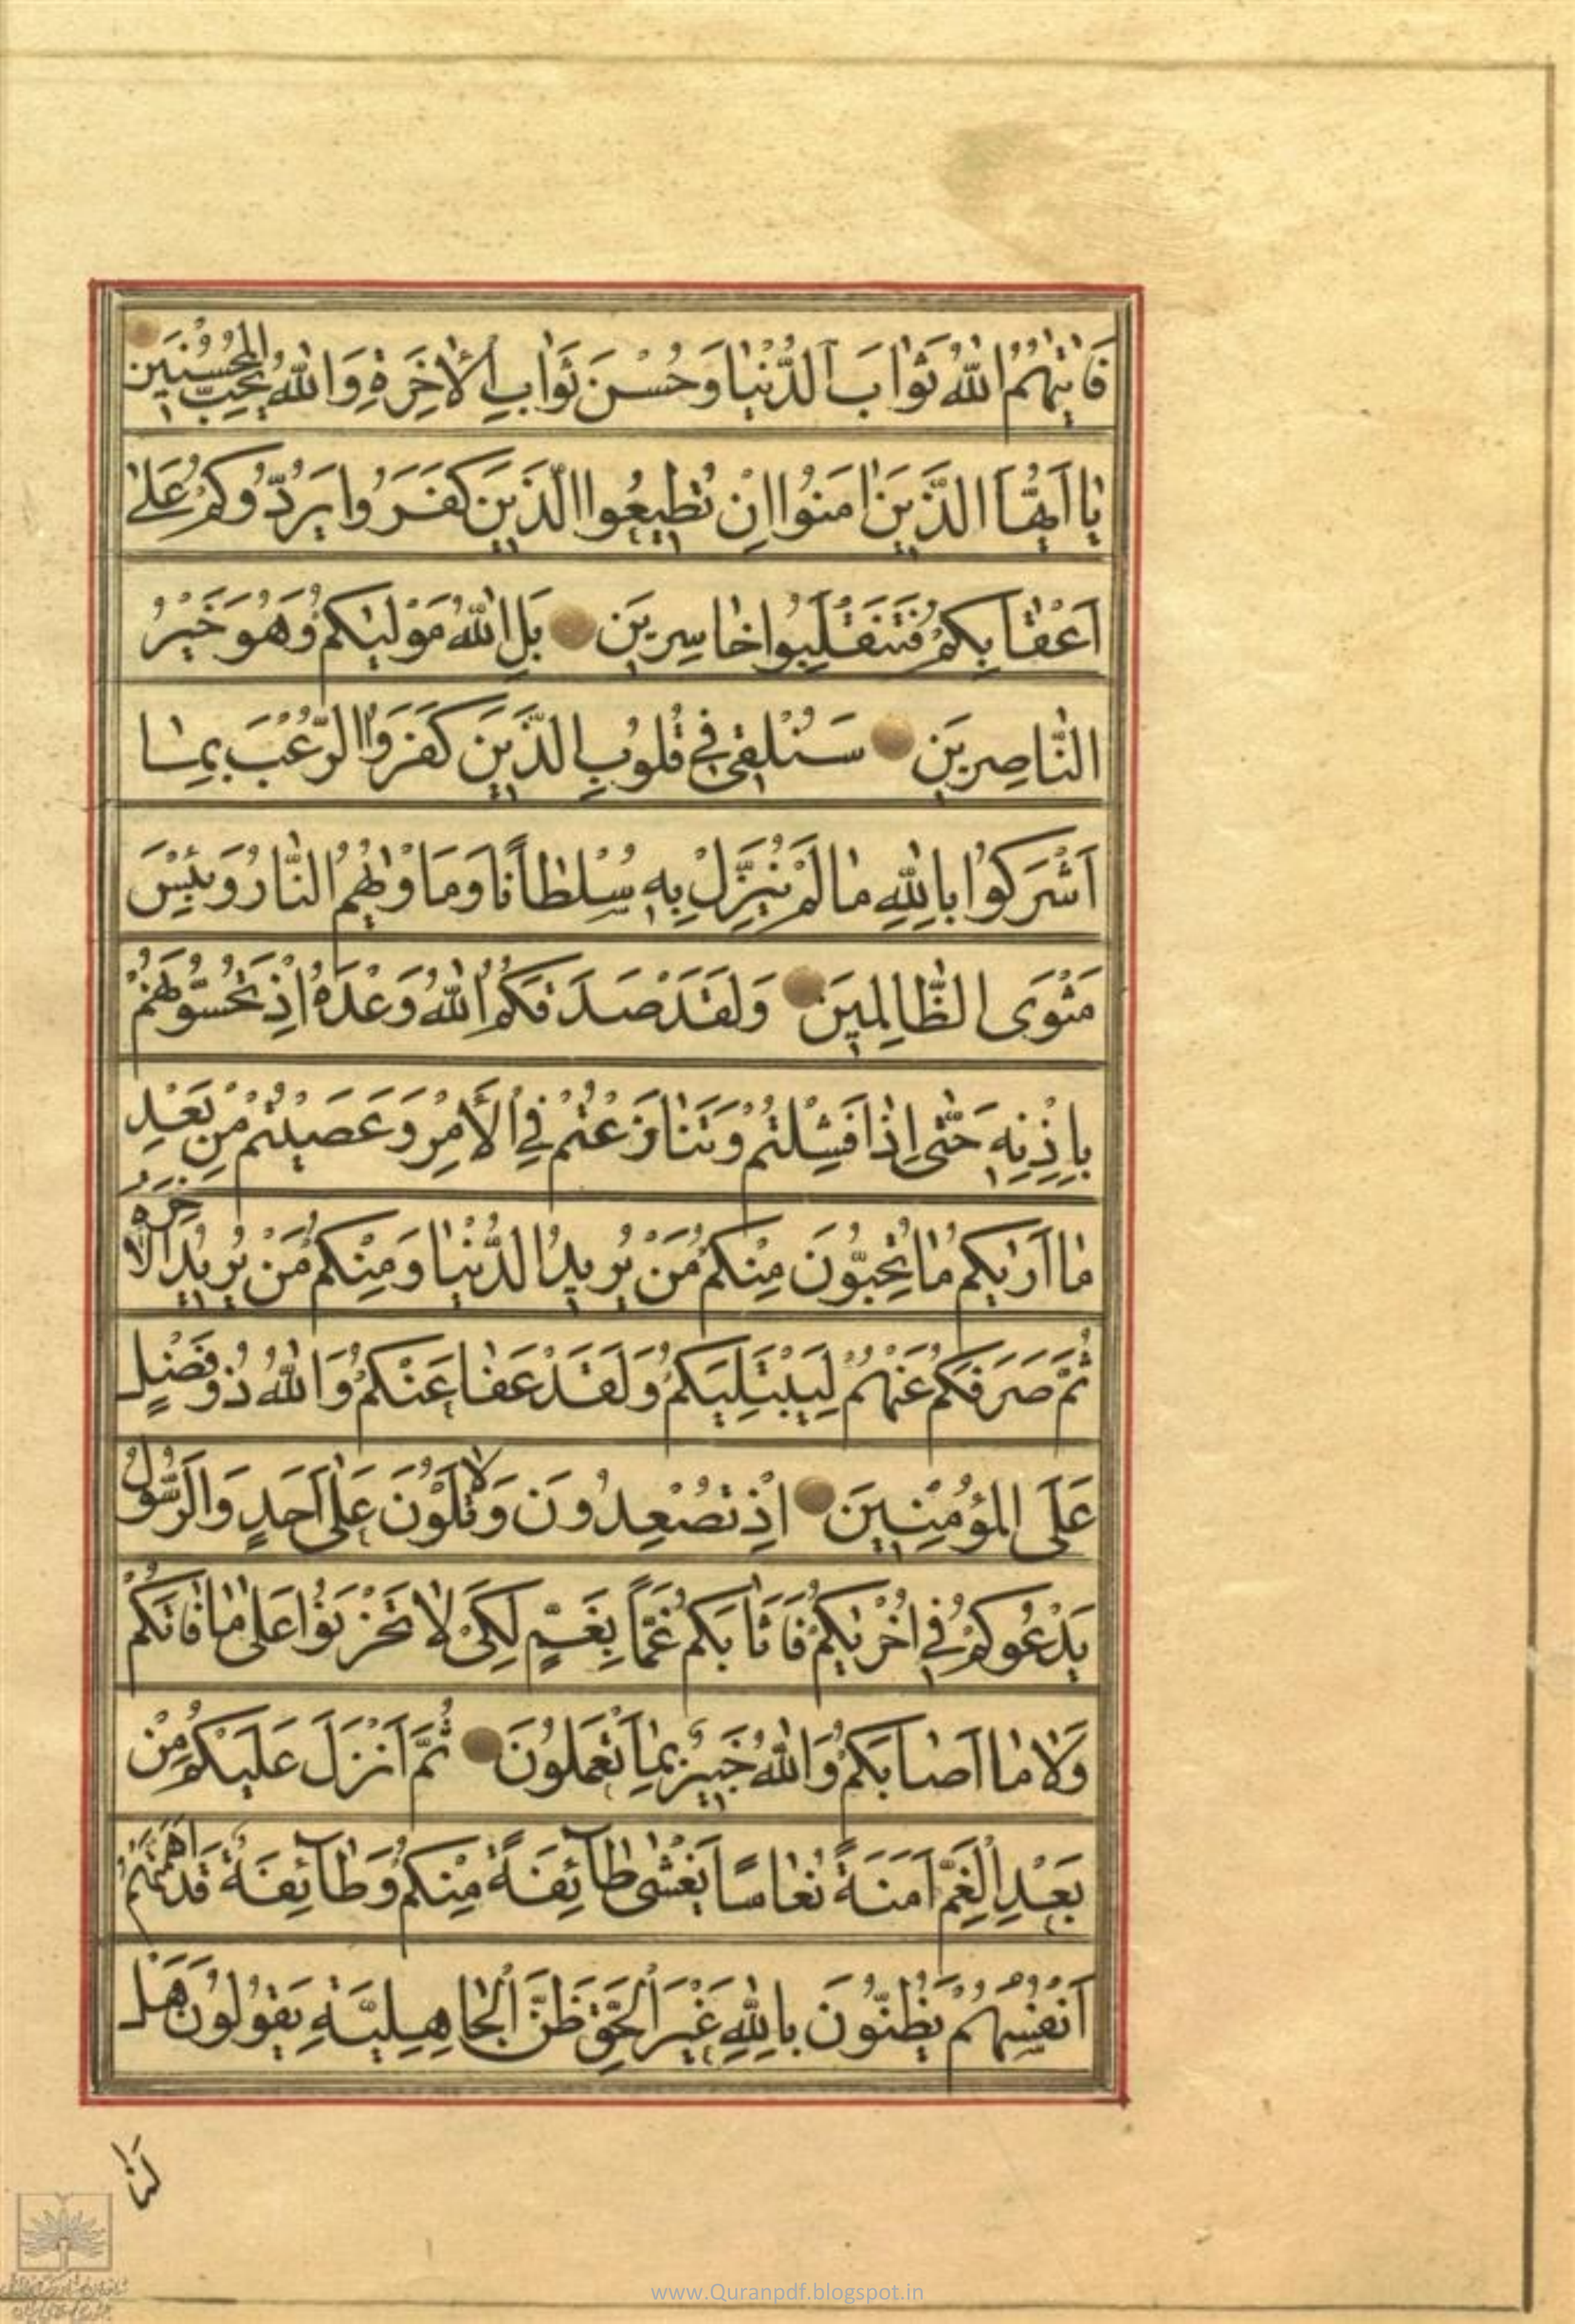 فَاٰتٰیهُمُ اللّٰهُ ثَوٰابَ الدُّنْیٰا وَحُسْنَ ثَوٰابِ الْاٰخِرَةِ وَاللّٰهُ یُحِبُّ الْمُحْسِنینَ
یٰا اَیُّهَا الَّذینَ اٰمَنُوا اِنْ تُطیعُوا الَّذینَ كَفَرُوا یَرُدُّوكُمْ عَلٰی
اَعْقٰابِكُمْ فَتَنْقَلِبُوا خٰاسِرینَ بَلِ اللّٰهُ مَوْلٰیكُمْ وَهُوَ خَیْرُ
النّٰاصِرینَ سَنُلْقی فی قُلُوبِ الَّذینَ كَفَرُوا الرُّعْبَ بِمٰا
اَشْرَكُوا بِاللّٰهِ مٰا لَمْ یُنَزِّلْ بِهِ سُلْطٰانًا وَمَاْوٰیهُمُ النّٰارُ وَبِئْسَ
مَثْوَی الظّٰالِمینَ وَلَقَدْ صَدَقَكُمُ اللّٰهُ وَعْدَهُ اِذْ تَحُسُّونَهُمْ
بِاِذْنِهِ حَتّٰی اِذٰا فَشِلْتُمْ وَتَنٰازَعْتُمْ فِی الْاَمْرِ وَعَصَیْتُمْ مِنْ بَعْدِ
مٰا اَرٰیكُمْ مٰا تُحِبُّونَ مِنْكُمْ مَنْ یُریدُ الدُّنْیٰا وَمِنْكُمْ مَنْ یُریدُ الْاٰخِرَةَ
ثُمَّ صَرَفَكُمْ عَنْهُمْ لِیَبْتَلِیَكُمْ وَلَقَدْ عَفٰا عَنْكُمْ وَاللّٰهُ ذُو فَضْلٍ
عَلَی الْمُؤْمِنینَ اِذْ تُصْعِدُونَ وَلٰا تَلْوُونَ عَلٰی اَحَدٍ وَالرَّسُولُ
یَدْعُوكُمْ فی اُخْرٰیكُمْ فَاَثٰابَكُمْ غَمًّا بِغَمٍّ لِكَیْ لٰا تَحْزَنُوا عَلٰی مٰا فٰاتَكُمْ
وَلٰا مٰا اَصٰابَكُمْ وَاللّٰهُ خَبیرٌ بِمٰا تَعْمَلُونَ ثُمَّ اَنْزَلَ عَلَیْكُمْ مِنْ
بَعْدِ الْغَمِّ اَمَنَةً نُعٰاسًا یَغْشٰی طٰآئِفَةً مِنْكُمْ وَطٰآئِفَةٌ قَدْ اَهَمَّتْهُمْ
اَنْفُسُهُمْ یَظُنُّونَ بِاللّٰهِ غَیْرَ الْحَقِّ ظَنَّ الْجٰاهِلِیَّةِ یَقُولُونَ هَلْ
لَنٰا
www.Quranpdf.blogspot.in